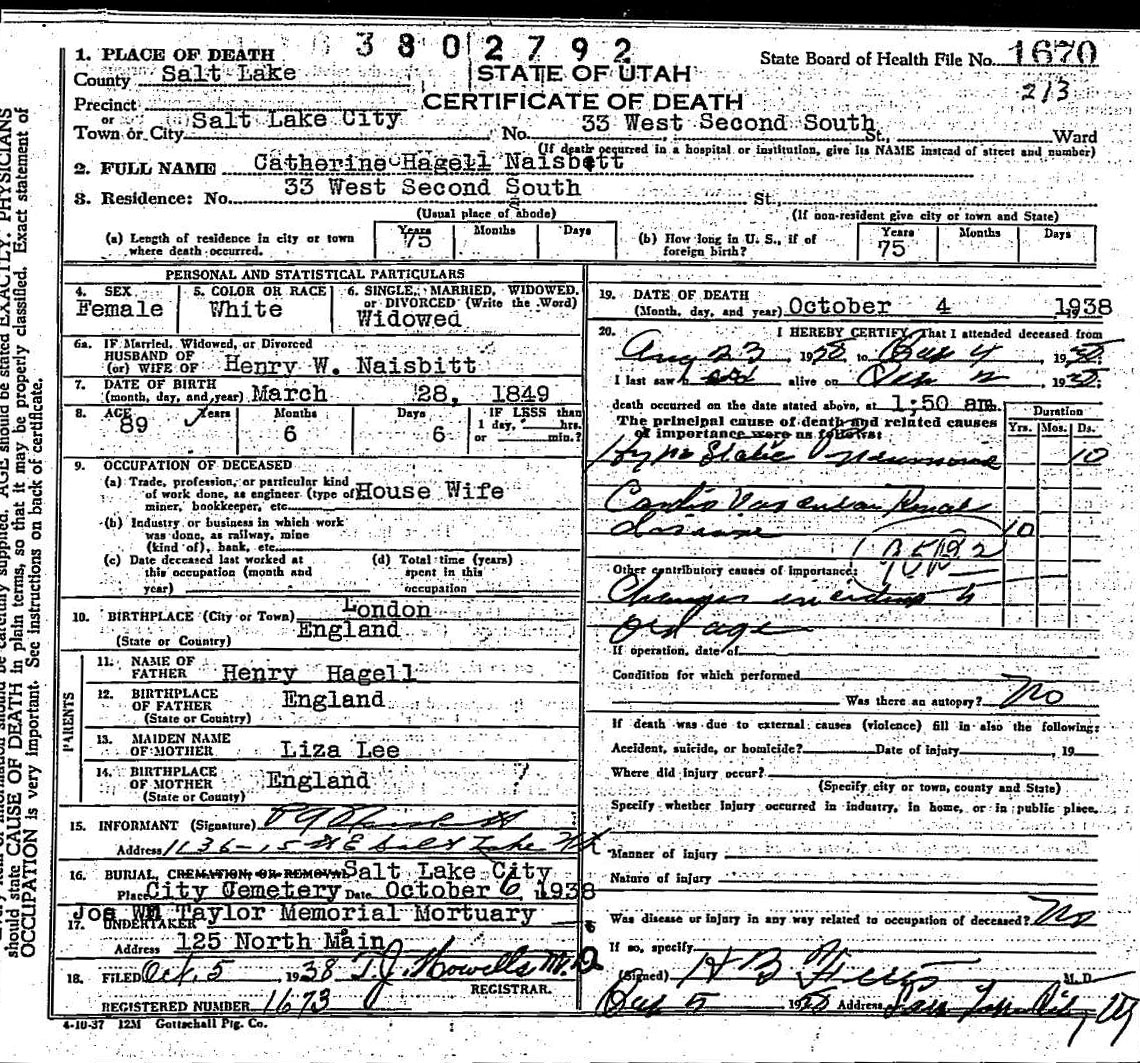 3802792
1. PLACE OF DEATH
State Board of Health File No. 1670
County Salt Lake
STATE OF UTAH
213
Precinct
CERTIFICATE OF DEATH
or
Town or City Salt Lake City No. 33 West Second South St., Ward
(If death occurred in a hospital or institution, give its NAME instead of street and number)
2. FULL NAME Catherine Hagell Naisbitt
3. Residence: No. 33 West Second South St.
(Usual place of abode)
(If non-resident give city or town and State)
(a) Length of residence in city or town where death occurred. Years 75 Months Days
(b) How long in U. S., if of foreign birth? Years 75 Months Days
PERSONAL AND STATISTICAL PARTICULARS
4. SEX
Female
5. COLOR OR RACE
White
6. SINGLE, MARRIED, WIDOWED,
or DIVORCED (Write the Word)
Widowed
6a. IF Married, Widowed, or Divorced
HUSBAND OF
(or) WIFE OF Henry W. Naisbitt
7. DATE OF BIRTH
(month, day, and year) March 28, 1849
8. AGE Years Months Days IF LESS than
89 6 6 1 day, hrs.
or min.?
9. OCCUPATION OF DECEASED
(a) Trade, profession, or particular kind
of work done, as engineer (type of House Wife
miner, bookkeeper, etc.
(b) Industry or business in which work
was done, as railway, mine
(kind of), bank, etc.
(c) Date deceased last worked at
this occupation (month and
year)
(d) Total time (years)
spent in this
occupation
10. BIRTHPLACE (City or Town) London
England
(State or Country)
PARENTS
11. NAME OF
FATHER Henry Hagell
12. BIRTHPLACE
OF FATHER England
(State or Country)
13. MAIDEN NAME
OF MOTHER Liza Lee
14. BIRTHPLACE
OF MOTHER England
(State or Country)
15. INFORMANT (Signature)
Address 1136-15th E Salt Lake
16. BURIAL, CREMATION, OR REMOVAL Salt Lake City
Place City Cemetery Date October 6, 1938
Jos Wm Taylor Memorial Mortuary
17. UNDERTAKER
Address 125 North Main
18. FILED Oct. 5 1938 T.J. Howells M.D
REGISTRAR.
REGISTERED NUMBER 1673
4-10-37 12M Gottschall Ptg. Co.
19. DATE OF DEATH
(Month, day, and year) October 4 1938
20. I HEREBY CERTIFY, That I attended deceased from
Aug 23, 1938 to Oct 4, 1938.
I last saw her alive on Oct 1938.
death occurred on the date stated above, at 1;50 am.
The principal cause of death and related causes
of importance were as follows:
Duration
Yrs. Mos. Ds.
Hypo Static Pneumonia 10
Cardio Vascular Renal
disease 10
Other contributory causes of importance:
Changes incident to
Old age
If operation, date of
Condition for which performed
Was there an autopsy? No
If death was due to external causes (violence) fill in also the following:
Accident, suicide, or homicide? Date of injury , 19
Where did injury occur?
(Specify city or town, county and State)
Specify whether injury occurred in industry, in home, or in public place.
Manner of injury
Nature of injury
Was disease or injury in any way related to occupation of deceased? No
If so, specify
(Signed) H B M. D.
Oct 5 1938 Address
should state CAUSE OF DEATH in plain terms, so that it may be properly classified. Exact statement of
OCCUPATION is very important. See instructions on back of certificate.